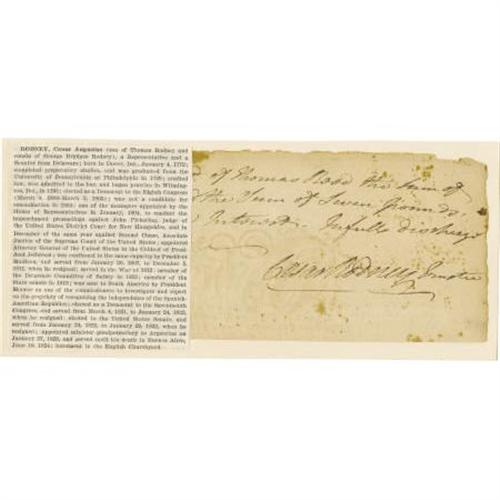 RODNEY, Cæsar Augustus (son of Thomas Rodney and
cousin of George Brydges Rodney); a Representative and a
Senator from Delaware; born in Dover, Del., January 4, 1772;
completed preparatory studies, and was graduated from the
University of Pennsylvania at Philadelphia in 1789; studied
law; was admitted to the bar, and began practice in Wilming-
ton, Del., in 1793; elected as a Democrat to the Eighth Congress
(March 4, 1803-March 3, 1805); was not a candidate for
renomination in 1804; one of the managers appointed by the
House of Representatives in January, 1804, to conduct the
impeachment proceedings against John Pickering, judge of
the United States District Court for New Hampshire, and in
December of the same year against Samuel Chase, Associate
Justice of the Supreme Court of the United States; appointed
Attorney General of the United States in the Cabinet of Presi-
dent Jefferson; was continued in the same capacity by President
Madison, and served from January 20, 1807, to December 5,
1811, when he resigned; served in the War of 1812; member of
the Delaware Committee of Safety in 1813; member of the
State senate in 1815; was sent to South America by President
Monroe as one of the commissioners to investigate and report
on the propriety of recognizing the independence of the Spanish-
American Republics; elected as a Democrat to the Seventeenth
Congress, and served from March 4, 1821, to January 24, 1822,
when he resigned; elected to the United States Senate, and
served from January 24, 1822, to January 29, 1823, when he
resigned; appointed minister plenipotentiary to Argentina on
January 27, 1823, and served until his death in Buenos Aires,
June 10, 1824; interment in the English Churchyard.
of Thomas the Sum of
the Sum of Seven pounds
Interest Infull discharge
Cæsar Rodney